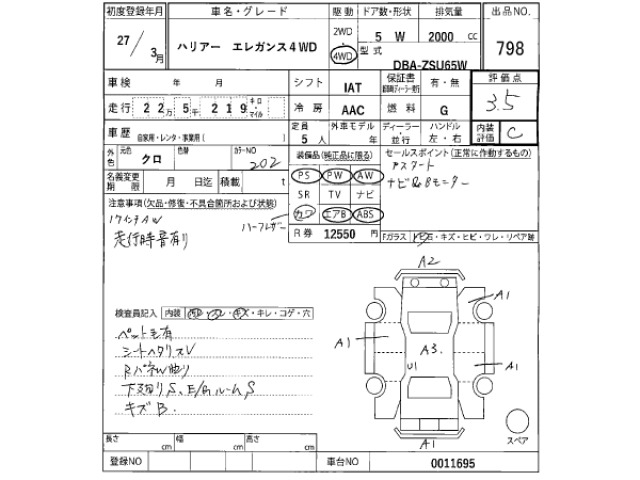 初度登録年月 車名・グレード 駆動 ドア数・形状 排気量 出品NO.
27/3月 ハリアー エレガンス4WD 2WD 4WD 5 W 2000 cc 798
型式 DBA-ZSU65W
車検 年 月 シフト IAT 保証書 有・無 評価点
走行 22万5千219 キロ マイル 冷房 AAC 燃料 G 3.5
車歴 自家用・レンタ・事業用( ) 定員 5人 外車モデル 年 ディーラー・並行 ハンドル 左・右 内装評価 C
外色 元色 クロ 色替 カラーNO 202
装備品(純正品に限る) セールスポイント(正常に作動するもの)
名義変更期限 月 日迄 積載 t
PS PW AW
アスタート
SR TV ナビ
ナビ&Bモニター
カワ エアB ABS
注意事項(欠品・修復・不具合箇所および状態)
17インチAW ハーフレザー
走行時音有り
R券 12550円 Fガラス トビ石・キズ・ヒビ・ワレ・リペア跡
A2
A1
検査員記入 内装 ・キズ・キレ・コゲ・穴
ペット毛有
シートヘタリスレV
A1 A3 U1 A1
下廻りS、E/Gルーム S
キズB.
A1 スペア
長さ cm 幅 cm 高さ cm
登録NO 車台NO 0011695